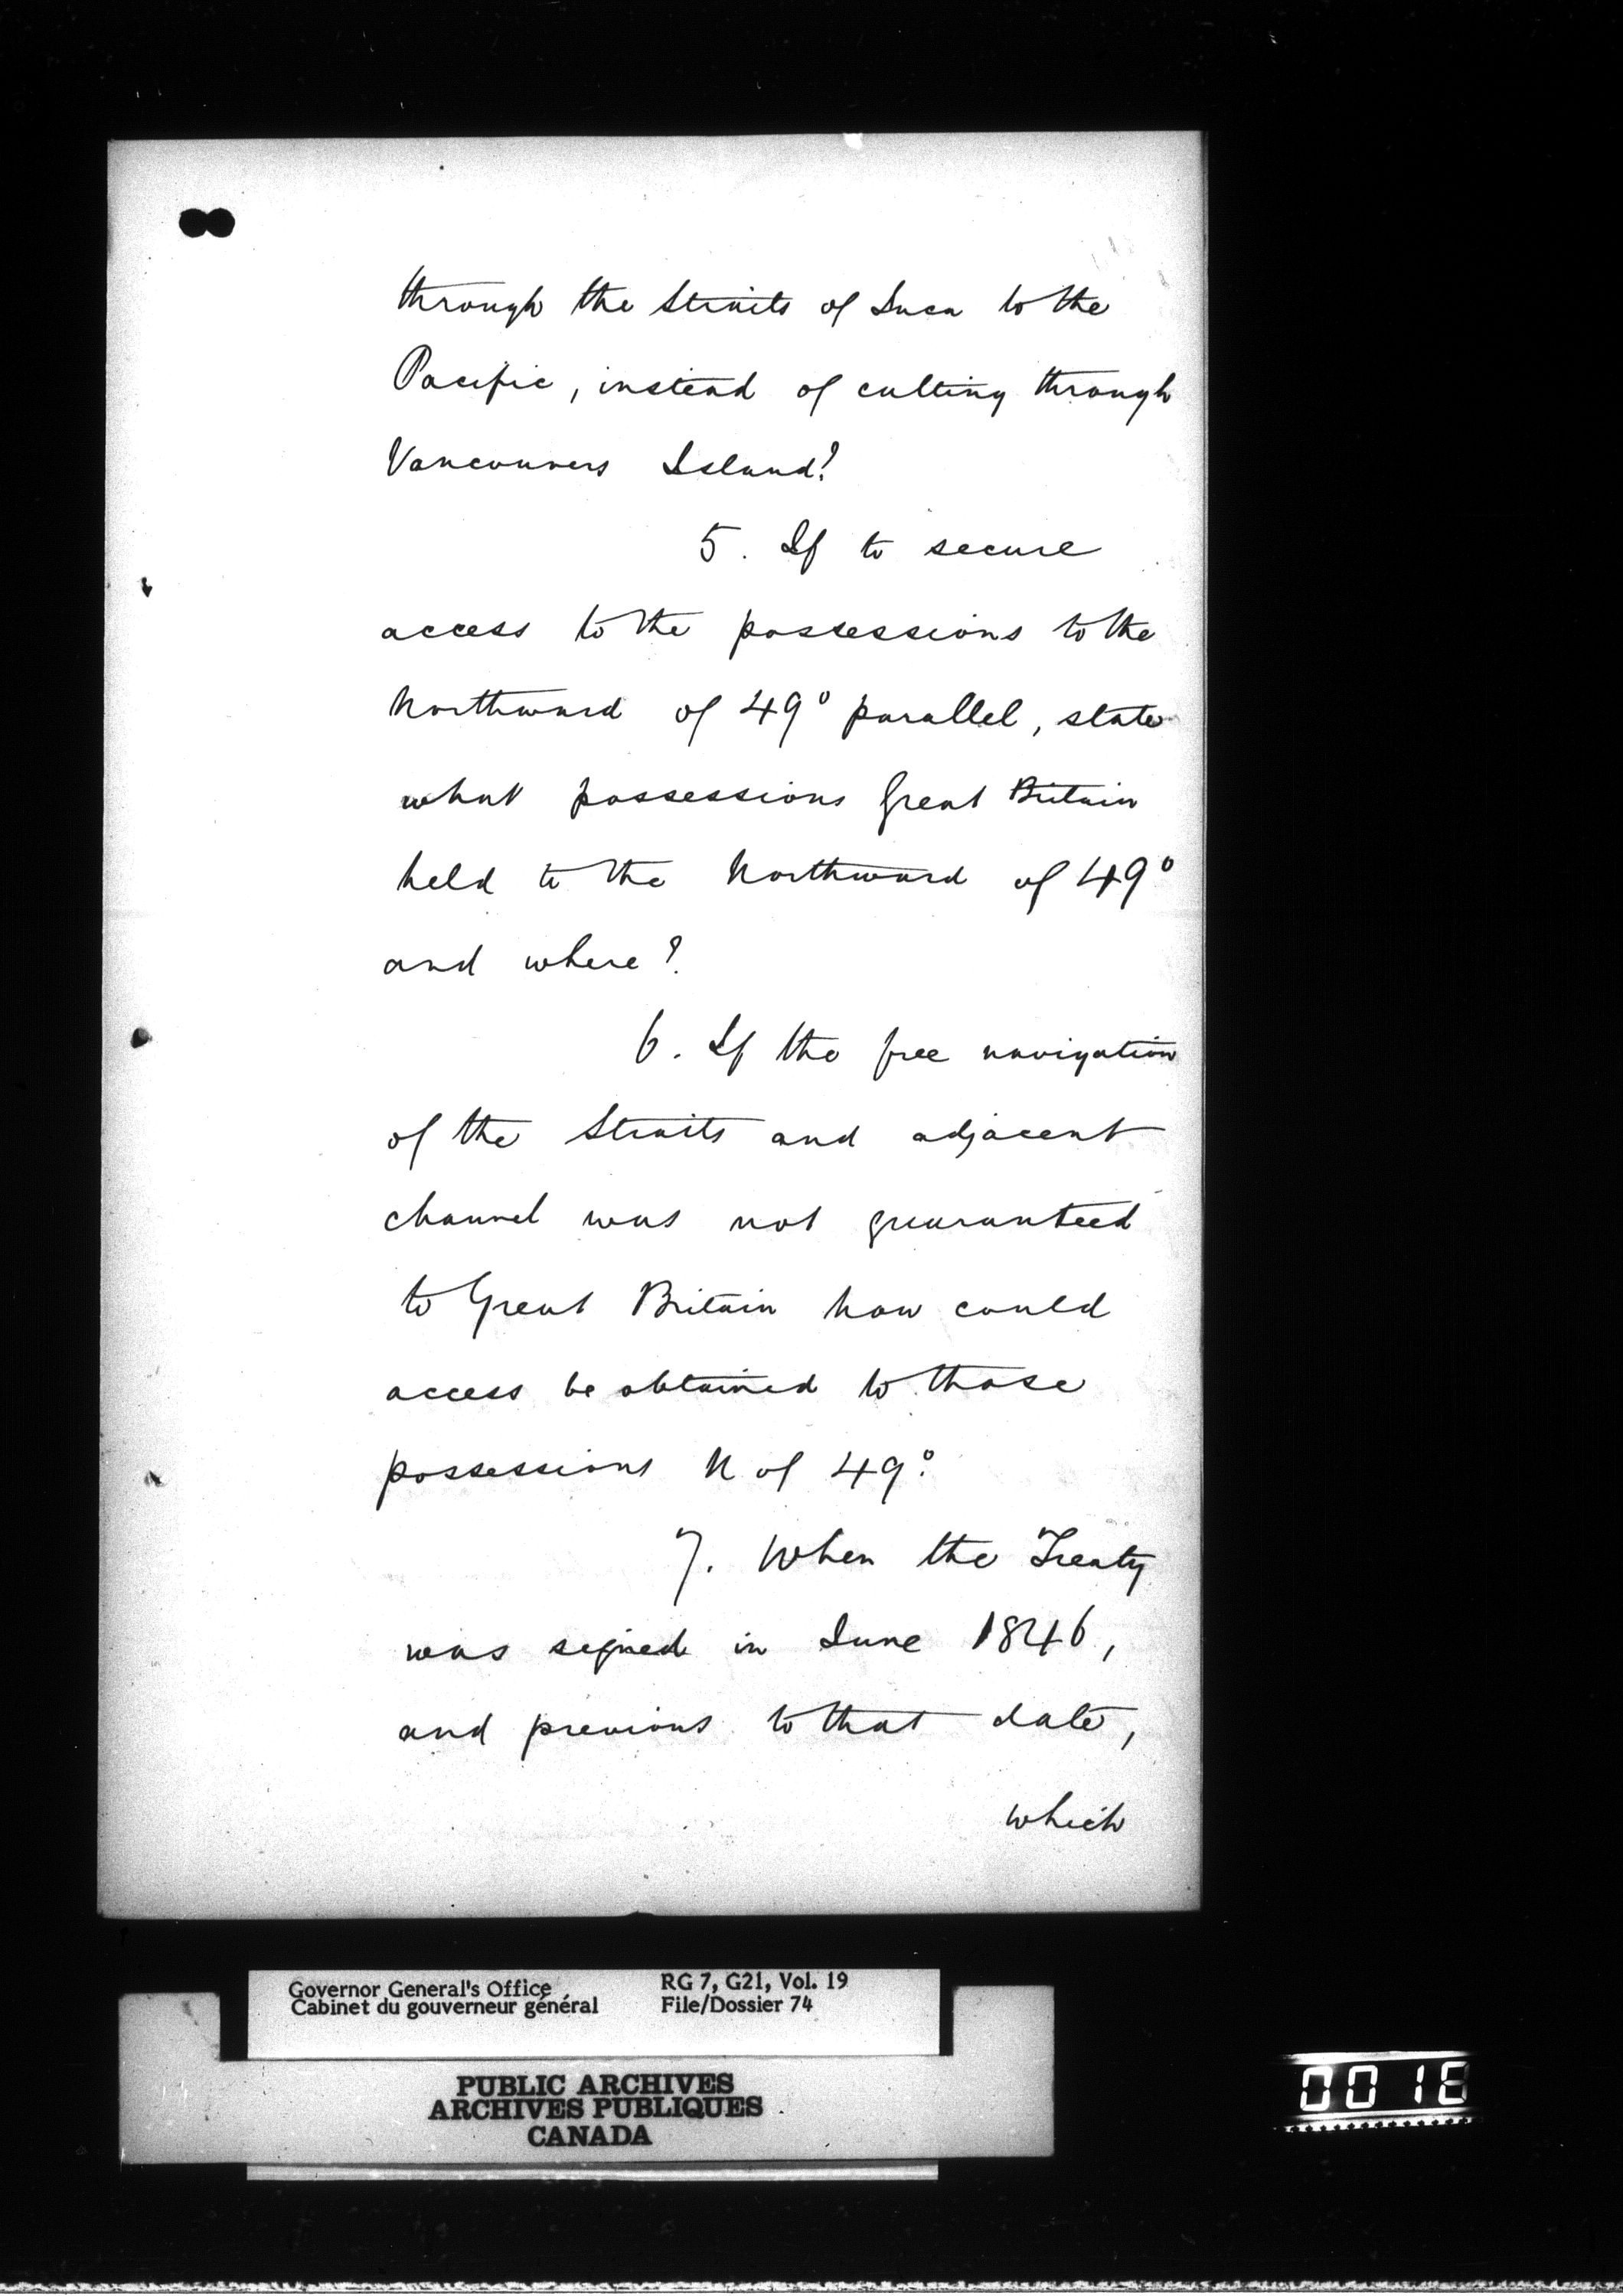 through the Straits of Juca to the
Pacific, instead of cutting through
Vancouvers Island?
5. If to secure
access to the possessions to the
Northward of 49° parallel, state
what possessions Great Britain
held to the Northward of 49°
and where?
6. If the free navigation
of the Straits and adjacent
channel was not guaranteed
to Great Britain how could
access be obtained to those
possessions N of 49°.
7. When the Treaty
was signed in June 1846,
and previous to that date,
which
Governor General's Office
Cabinet du gouverneur général
RG 7, G21, Vol. 19
File/Dossier 74
PUBLIC ARCHIVES
ARCHIVES PUBLIQUES
CANADA